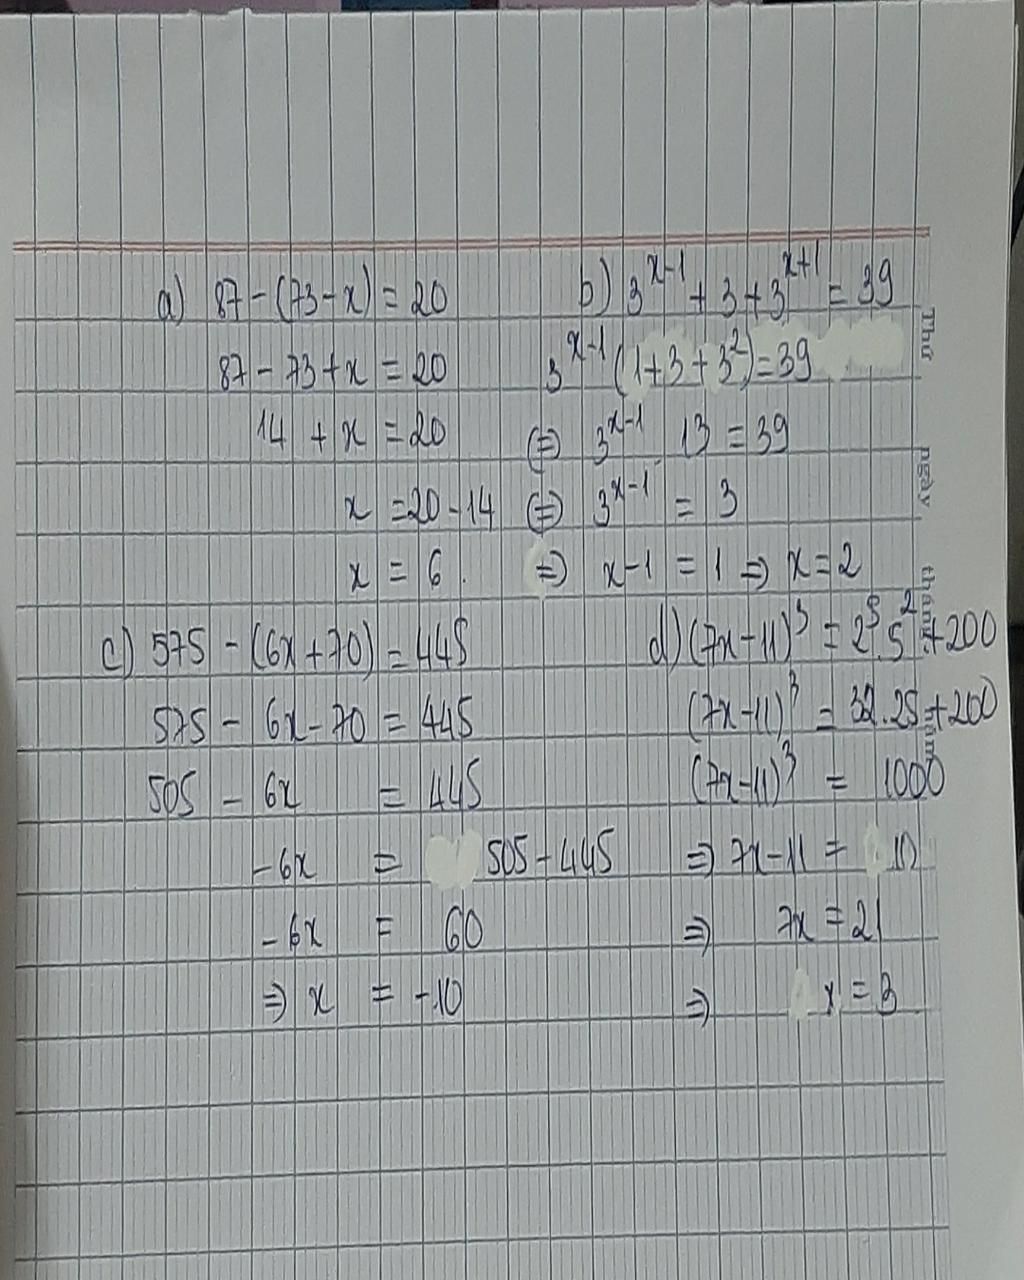 a) 87 - (73 - x) = 20
87 - 73 + x = 20
14 + x = 20
x = 20 - 14
x = 6.
b) 3^{x-1} + 3 + 3^{x+1} = 39
3^{x-1} (1 + 3 + 3^2) = 39
(=) 3^{x-1} . 13 = 39
(=) 3^{x-1} = 3
=) x - 1 = 1 => x = 2
c) 575 - (6x + 70) = 445
575 - 6x - 70 = 445
505 - 6x = 445
-6x = 505 - 445
-6x = 60
=> x = -10
d) (7x - 11)^3 = 2^5 . 5^2 + 200
(7x - 11)^3 = 32 . 25 + 200
(7x - 11)^3 = 1000
=> 7x - 11 = 10
=> 7x = 21
=> x = 3
Thứ
ngày
tháng